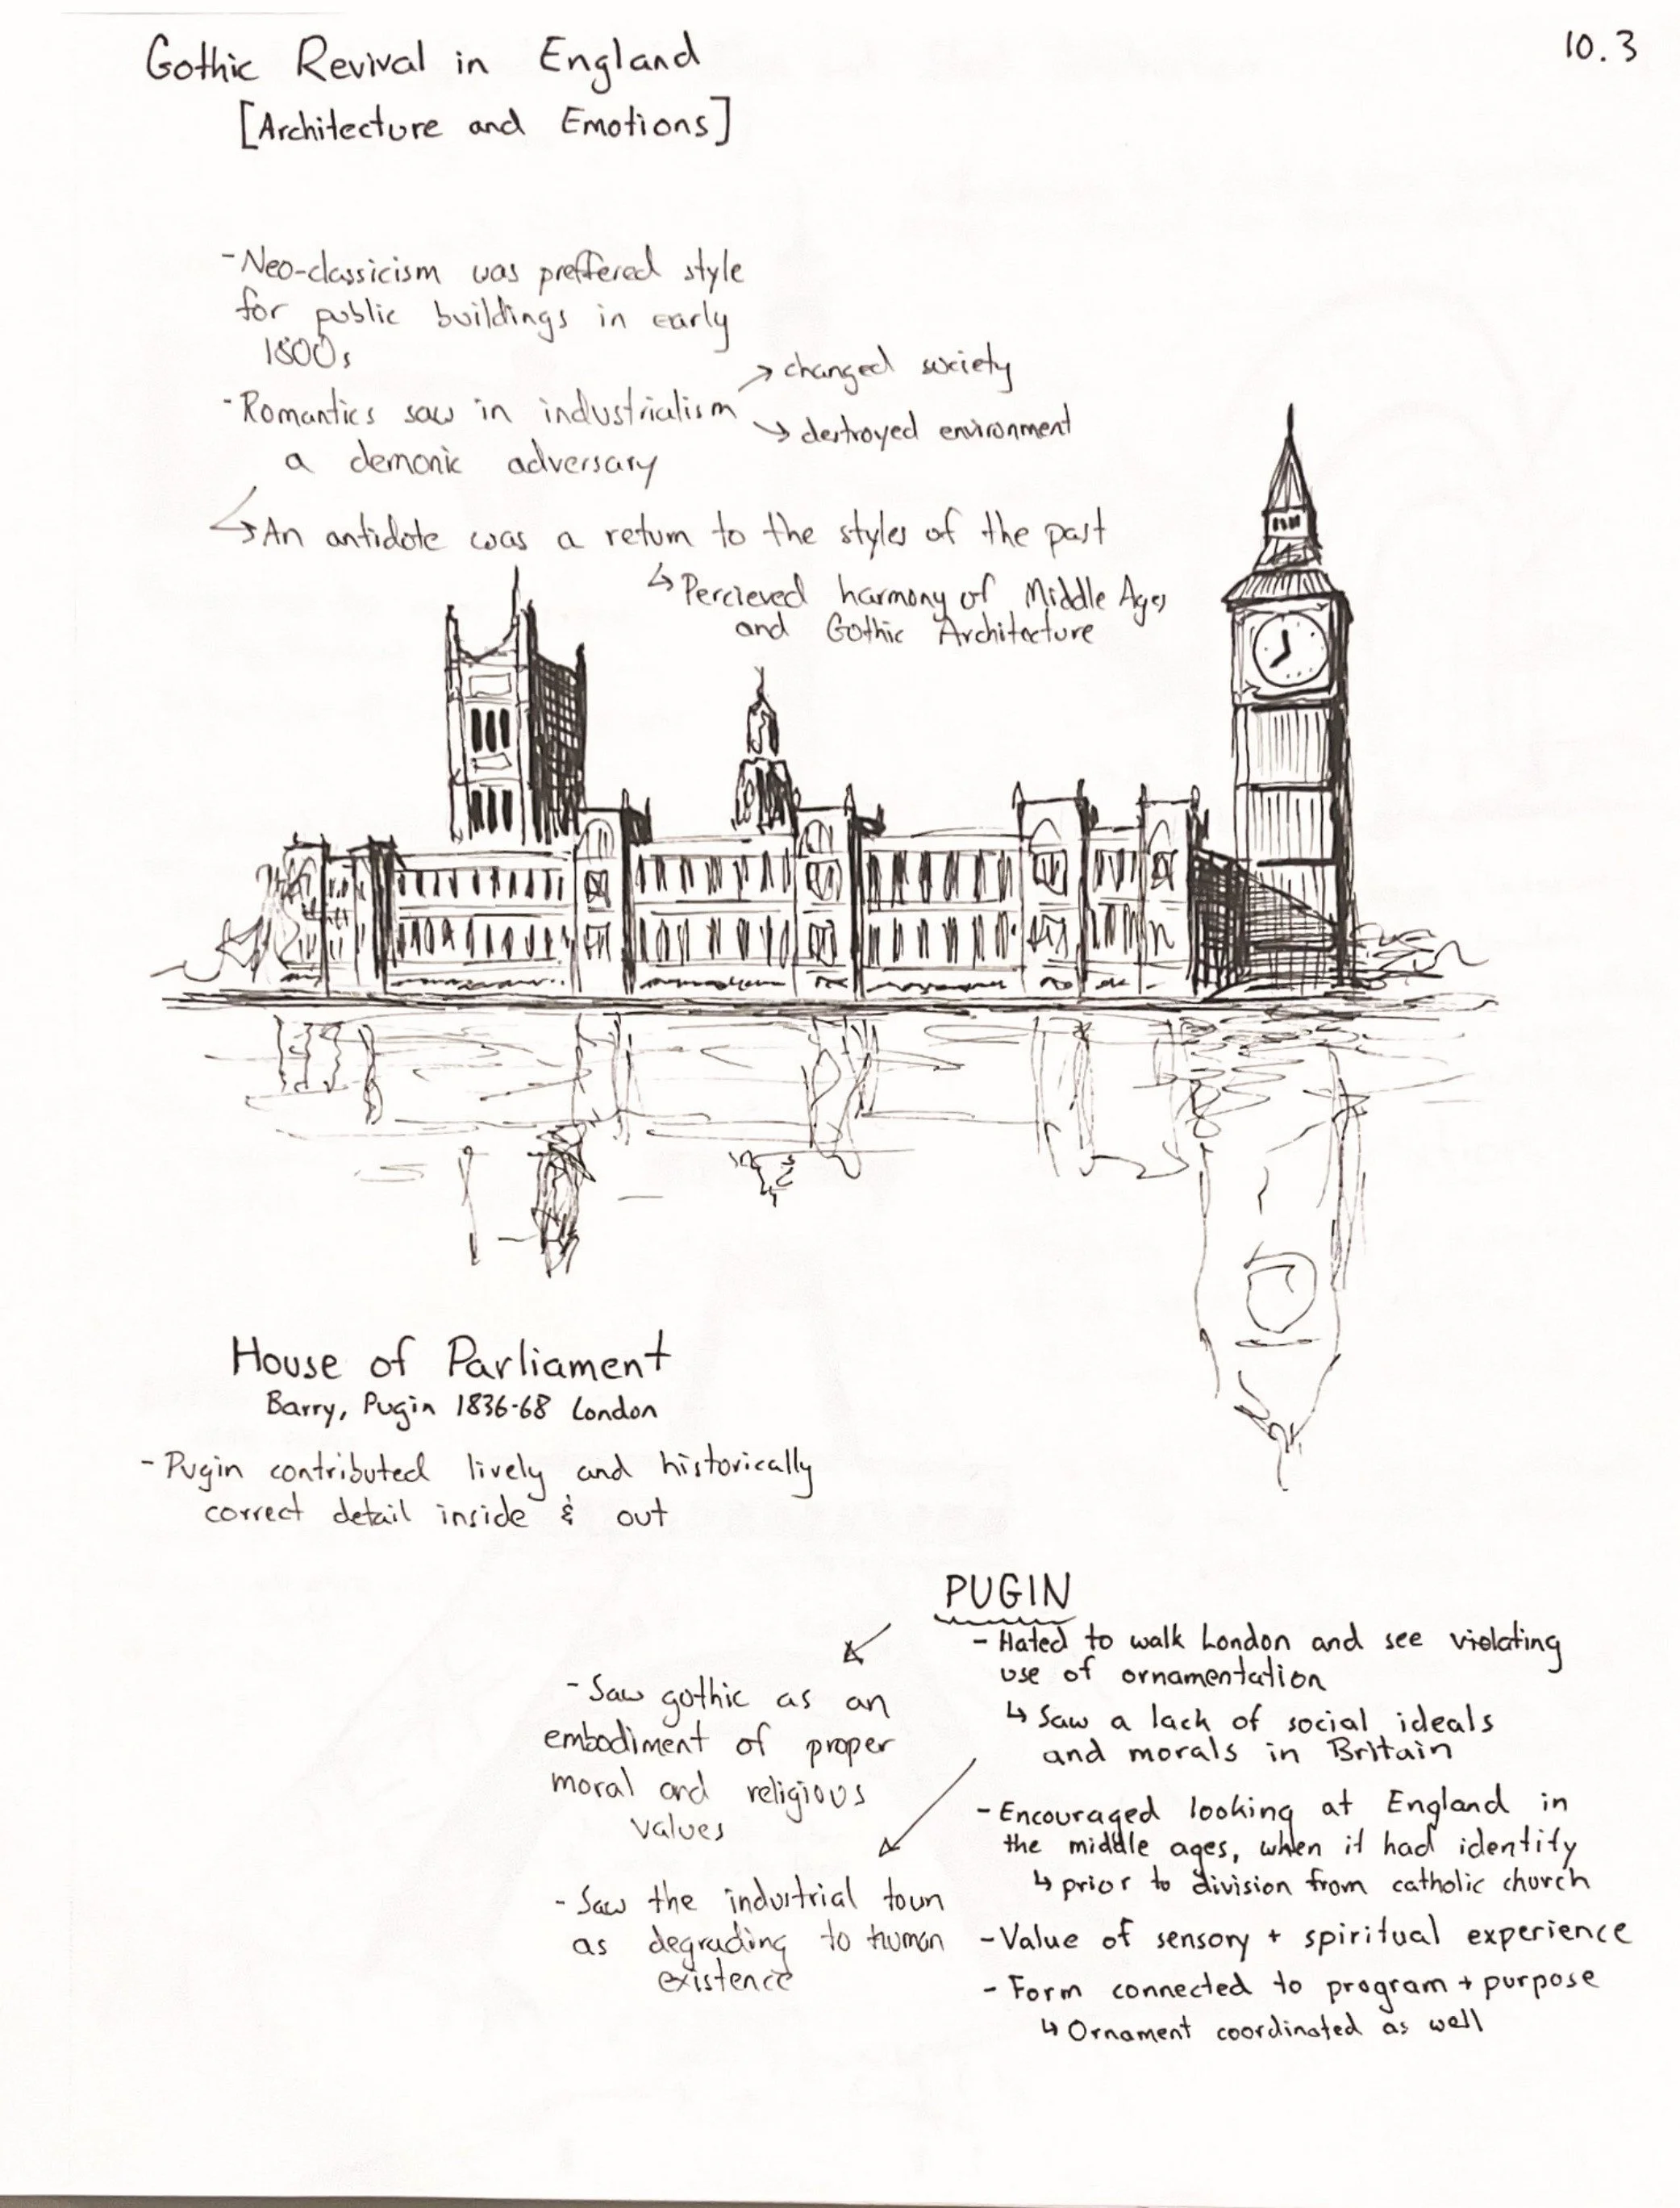 Gothic Revival in England
10.3
[Architecture and Emotions]
- Neo-classicism was preffered style
for public buildings in early
1800s
- Romantics saw in industrialism
→ changed society
↘ destroyed environment
a demonic adversary
↳ An antidote was a return to the styles of the past
↳ Percieved harmony of Middle Ages
and Gothic Architecture
House of Parliament
Barry, Pugin 1836-68 London
- Pugin contributed lively and historically
correct detail inside & out
PUGIN
- Hated to walk London and see violating
use of ornamentation
↳ Saw a lack of social ideals
and morals in Britain
- Encouraged looking at England in
the middle ages, when it had identity
↳ prior to division from catholic church
- Value of sensory + spiritual experience
- Form connected to program + purpose
↳ Ornament coordinated as well
- Saw gothic as an
embodiment of proper
moral and religious
values
- Saw the industrial town
as degrading to human
existence